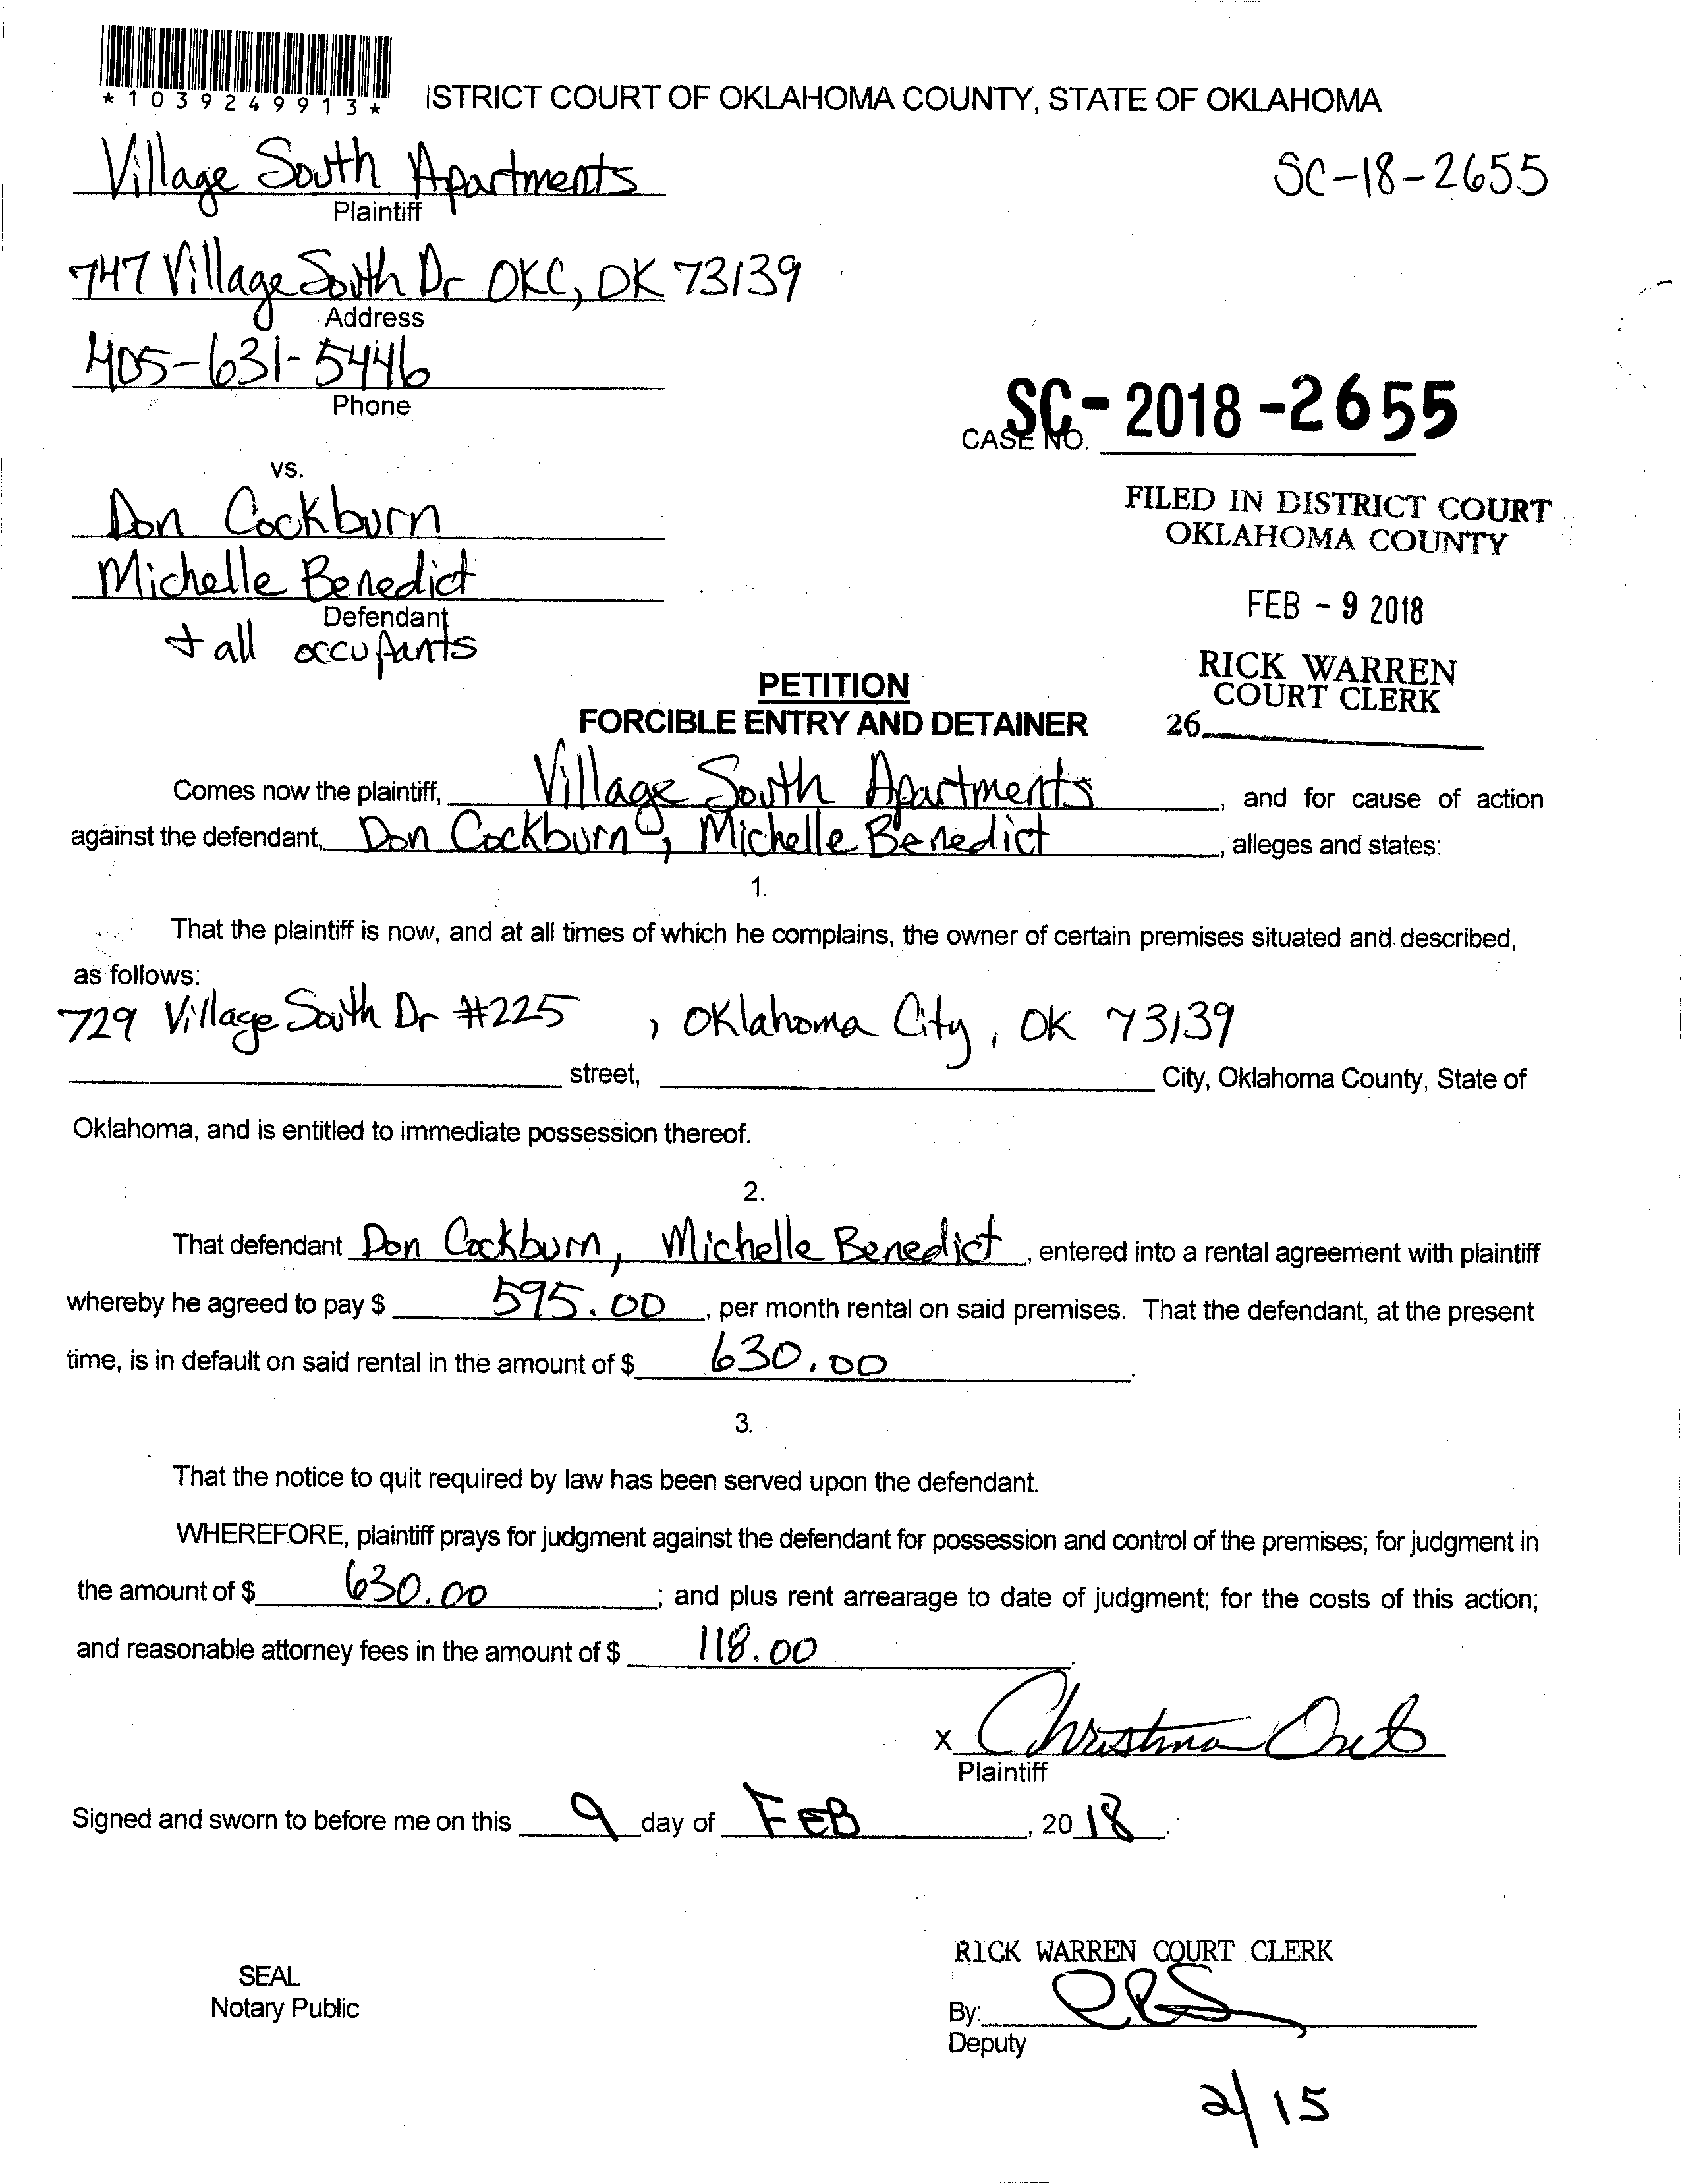 *1039249913*
ISTRICT COURT OF OKLAHOMA COUNTY, STATE OF OKLAHOMA
Village South Apartments
SC-18-2655
Plaintiff
747 Village South Dr OKC, OK 73139
Address
405-631-5446
Phone
SC-2018-2655
CASE NO.
vs.
FILED IN DISTRICT COURT
OKLAHOMA COUNTY
Don Cockburn
Michelle Benedict
Defendant
FEB - 9 2018
+ all occupants
RICK WARREN
COURT CLERK
26
PETITION
FORCIBLE ENTRY AND DETAINER
Comes now the plaintiff, Village South Apartments, and for cause of action
against the defendant, Don Cockburn, Michelle Benedict, alleges and states:
1.
That the plaintiff is now, and at all times of which he complains, the owner of certain premises situated and described,
as follows:
729 Village South Dr #225, Oklahoma City, OK 73139
street, City, Oklahoma County, State of
Oklahoma, and is entitled to immediate possession thereof.
2.
That defendant Don Cockburn, Michelle Benedict, entered into a rental agreement with plaintiff
whereby he agreed to pay $ 595.00, per month rental on said premises. That the defendant, at the present
time, is in default on said rental in the amount of $ 630.00.
3.
That the notice to quit required by law has been served upon the defendant.
WHEREFORE, plaintiff prays for judgment against the defendant for possession and control of the premises; for judgment in
the amount of $ 630.00; and plus rent arrearage to date of judgment; for the costs of this action;
and reasonable attorney fees in the amount of $ 118.00.
x Christina
Plaintiff
Signed and sworn to before me on this 9 day of FEB, 2018.
RICK WARREN COURT CLERK
SEAL
Notary Public
By:
Deputy
2/15